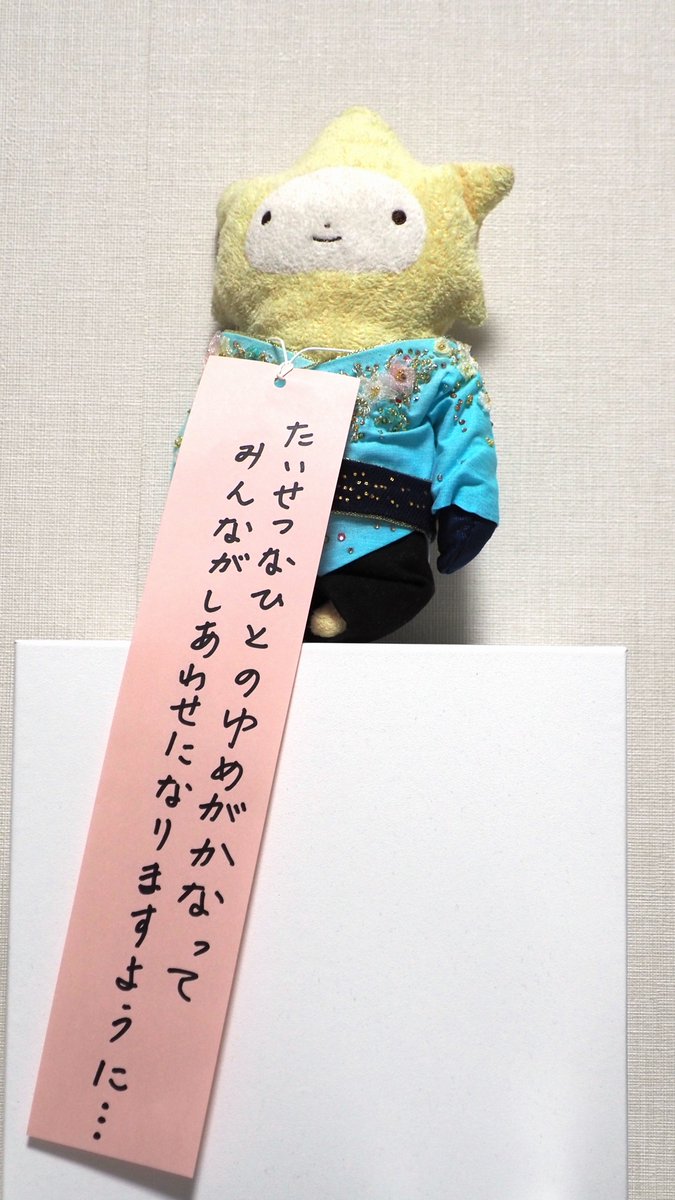 たいせつなひとのゆめがかなって
みんながしあわせになりますように…